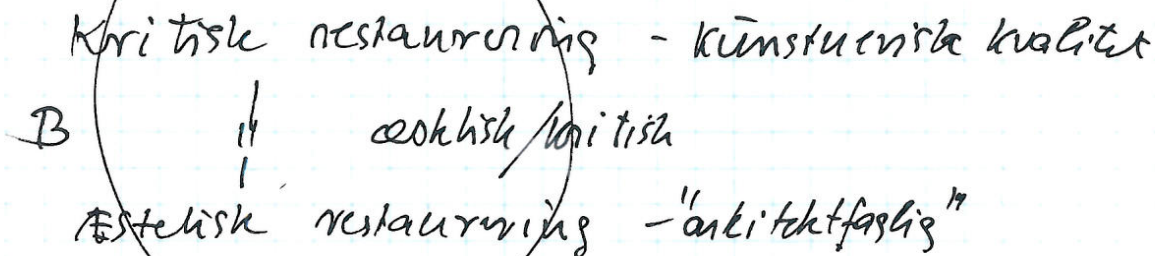 Kritisk restaurering - kunstnerisk kvalitet
B " /kritisk
Æstetisk restaurering - "arkitektfaglig"